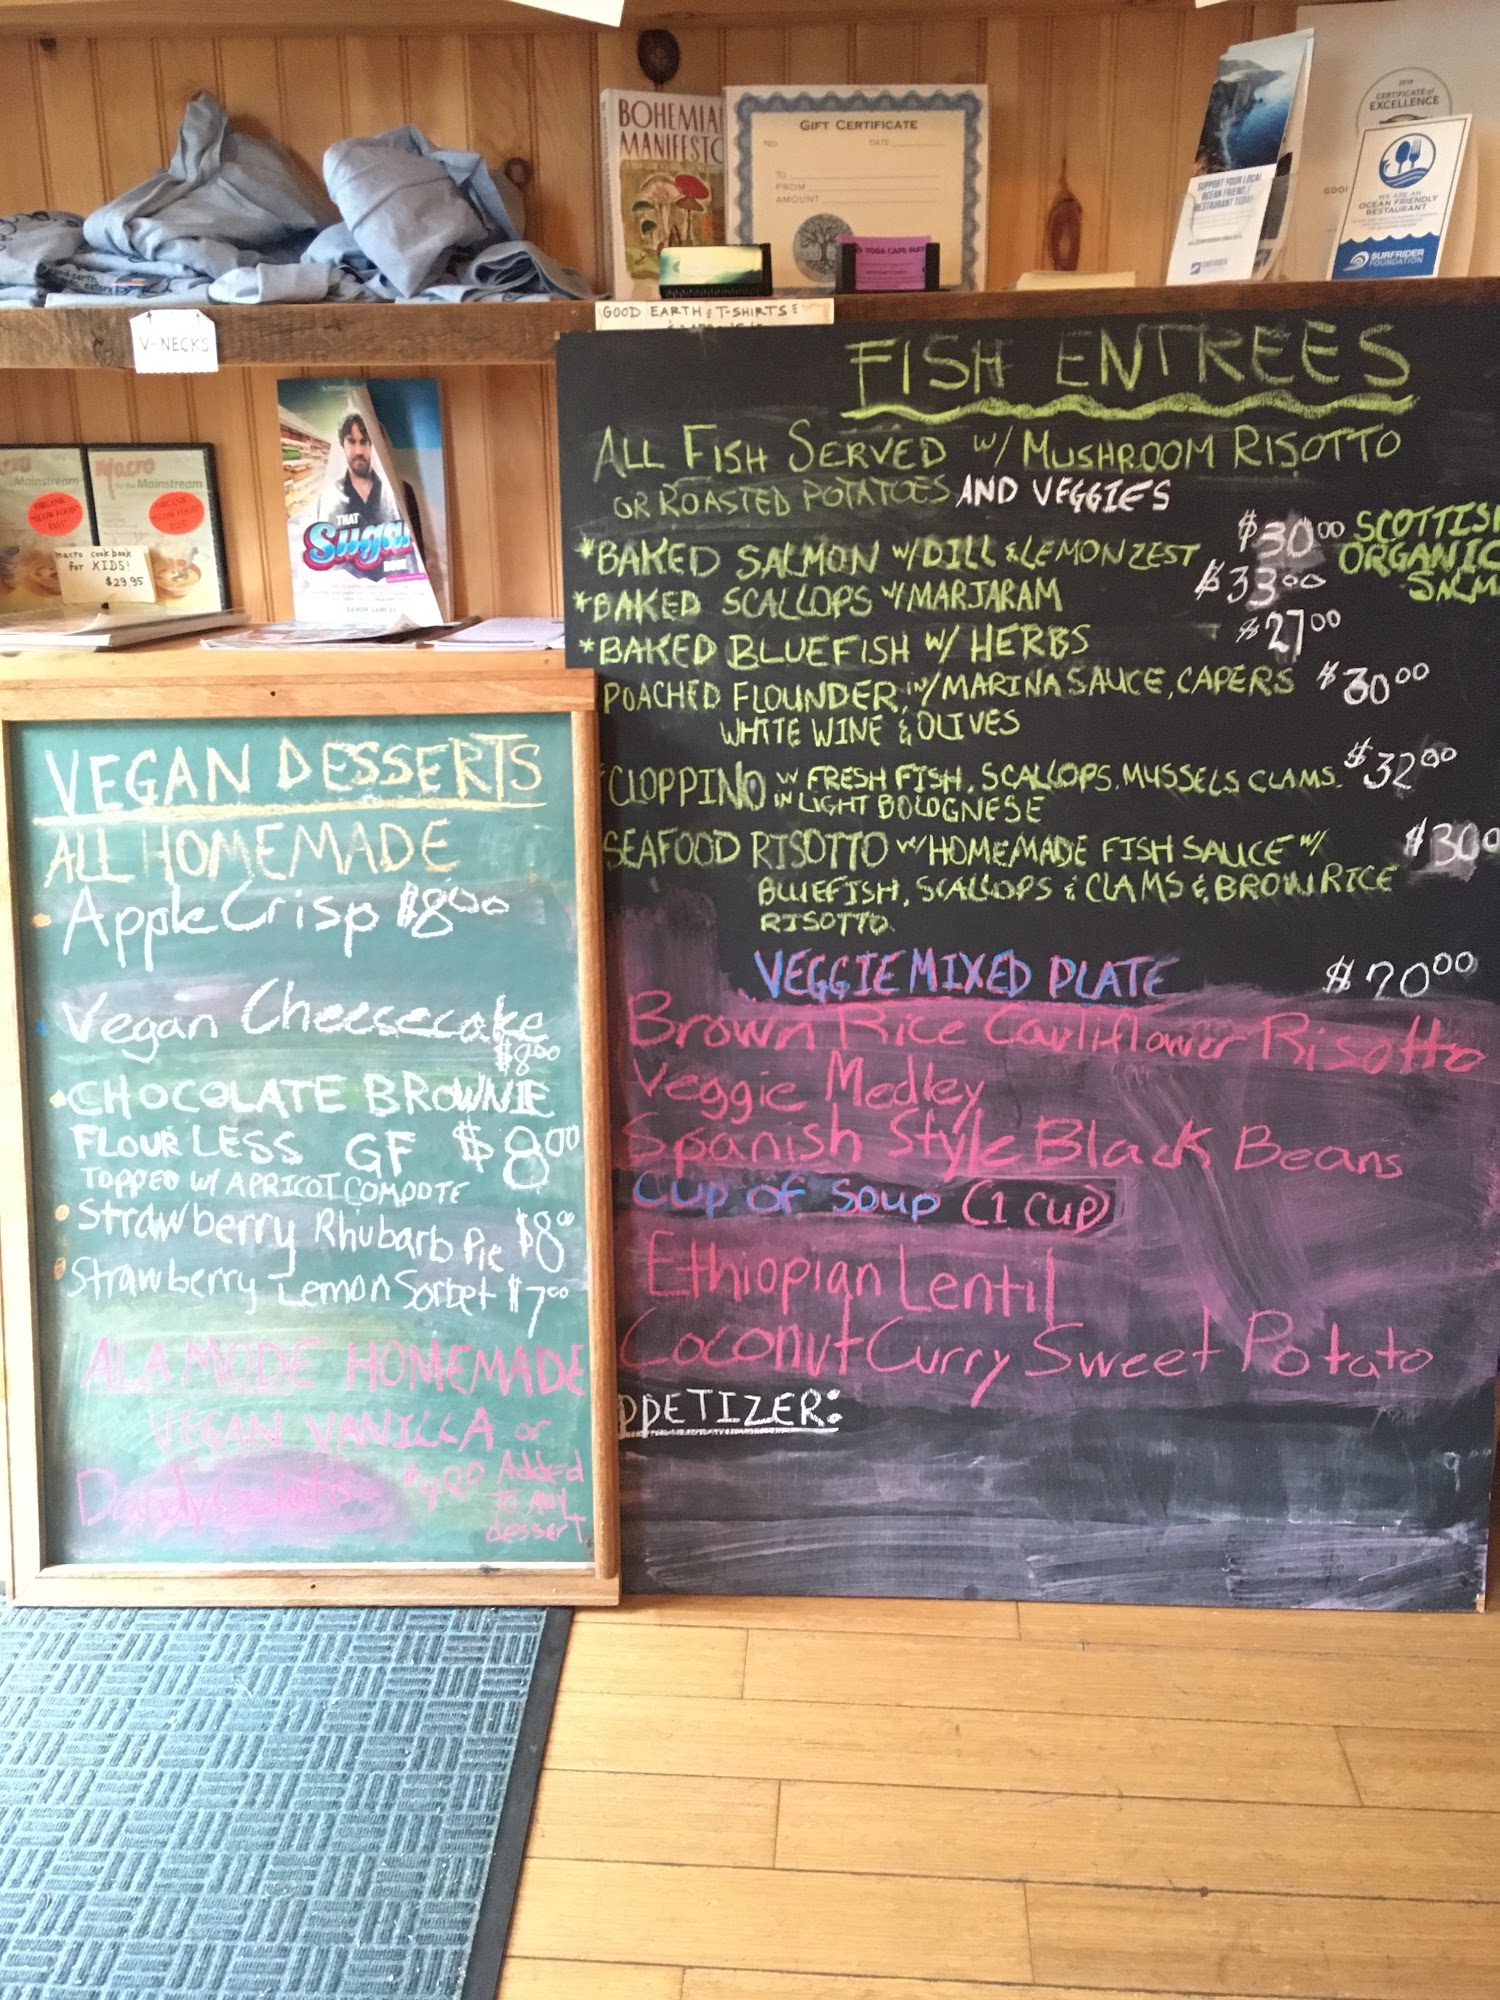 BOHEMIAN
MANIFESTO
GIFT CERTIFICATE
NO.
DATE
TO
FROM
AMOUNT
YOGA CAFE
SUPPORT YOUR LOCAL
OCEAN FRIENDLY
RESTAURANT TODAY
SURFRIDER
2019
CERTIFICATE of
EXCELLENCE
WE ARE AN
OCEAN FRIENDLY
RESTAURANT
SURFRIDER
FOUNDATION
V-NECKS
GOOD EARTH T-SHIRTS
Mainstream
ORGANIC
"SLOW FOOD"
Macro
for the Mainstream
ORGANIC
"SLOW FOOD"
macro cookbook
for KIDS!
$29.95
THAT
Sugar
BOOK
VEGAN DESSERTS
ALL HOMEMADE
Apple Crisp $8.00
Vegan Cheesecake
$8.00
CHOCOLATE BROWNIE
FLOURLESS GF $8.00
TOPPED W/ APRICOT COMPOTE
Strawberry Rhubarb Pie $8.00
Strawberry Lemon Sorbet $7.00
ALA MODE HOMEMADE
VEGAN VANILLA or
Dandy Gelato Added
To ANY
dessert
FISH ENTREES
ALL FISH SERVED W/ MUSHROOM RISOTTO
OR ROASTED POTATOES AND VEGGIES
*BAKED SALMON W/ DILL & LEMON ZEST $30.00 SCOTTISH
ORGANIC
SALM
*BAKED SCALLOPS W/ MARJARAM $33.00
*BAKED BLUEFISH W/ HERBS $27.00
POACHED FLOUNDER W/ MARINA SAUCE, CAPERS $30.00
WHITE WINE & OLIVES
CLOPPINO W FRESH FISH, SCALLOPS, MUSSELS CLAMS $32.00
IN LIGHT BOLOGNESE
SEAFOOD RISOTTO W/ HOMEMADE FISH SAUCE W/ $30.0
BLUEFISH, SCALLOPS & CLAMS & BROWN RICE
RISOTTO.
VEGGIE MIXED PLATE $20.00
Brown Rice Cauliflower Risotto
Veggie Medley
Spanish Style Black Beans
Cup of Soup (1 cup)
Ethiopian Lentil
Coconut Curry Sweet Potato
PPETIZER: